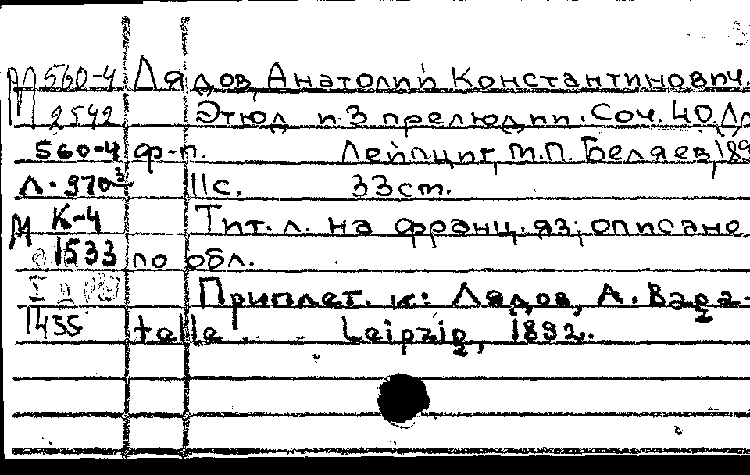 М 560-4 Лядов, Анатолий Константинович.
2542 Этюд и 3 прелюдии. Соч. 40. Дл
560-4 ф-п. Лейпциг, М.П. Беляев, 189
л. 970 11с. 33 cm.
М К-4 Тит. л. на франц. яз; описано
1533 по обл.
Приплет. к: Лядов, А. Baga-
1435 telle. Leipzig, 1892.